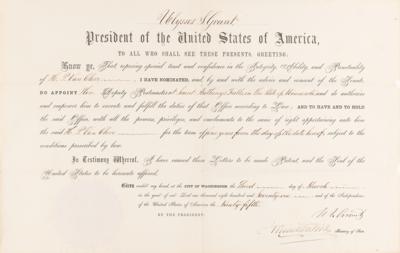 Ulysses S. Grant
President of the United States of America,
TO ALL WHO SHALL SEE THESE PRESENTS, GREETING:
Know ye, That reposing special trust and confidence in the Integrity, Ability, and Punctuality
of I HAVE NOMINATED, and, by and with the advice and consent of the Senate,
DO APPOINT him Deputy Postmaster at Saint Anthony Falls in the State of Minnesota and do authorize
and empower him to execute and fulfil the duties of that Office according to Law, AND TO HAVE AND TO HOLD
the said Office, with all the powers, privileges, and emoluments to the same of right appertaining unto him
the said for the term of four years from the day of the date hereof, subject to the
conditions prescribed by law.
In Testimony Whereof, I have caused these Letters to be made Patent, and the Seal of the
United States to be hereunto affixed.
GIVEN under my hand, at the CITY OF WASHINGTON, the Third day of March
in the year of our Lord one thousand eight hundred and seventy one and of the Independence
of the United States of America the ninety fifth
BY THE PRESIDENT: U. S. Grant
Secretary of State.